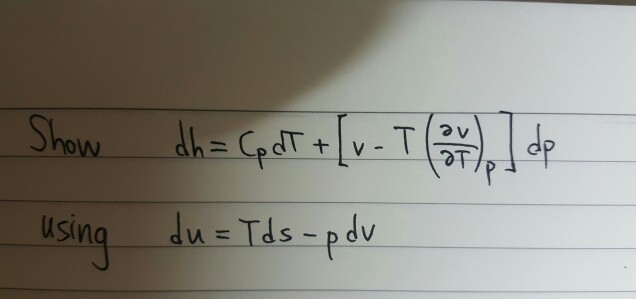 Show dh = CpdT + [v - T (∂v/∂T)p] dp
using du = Tds - pdv